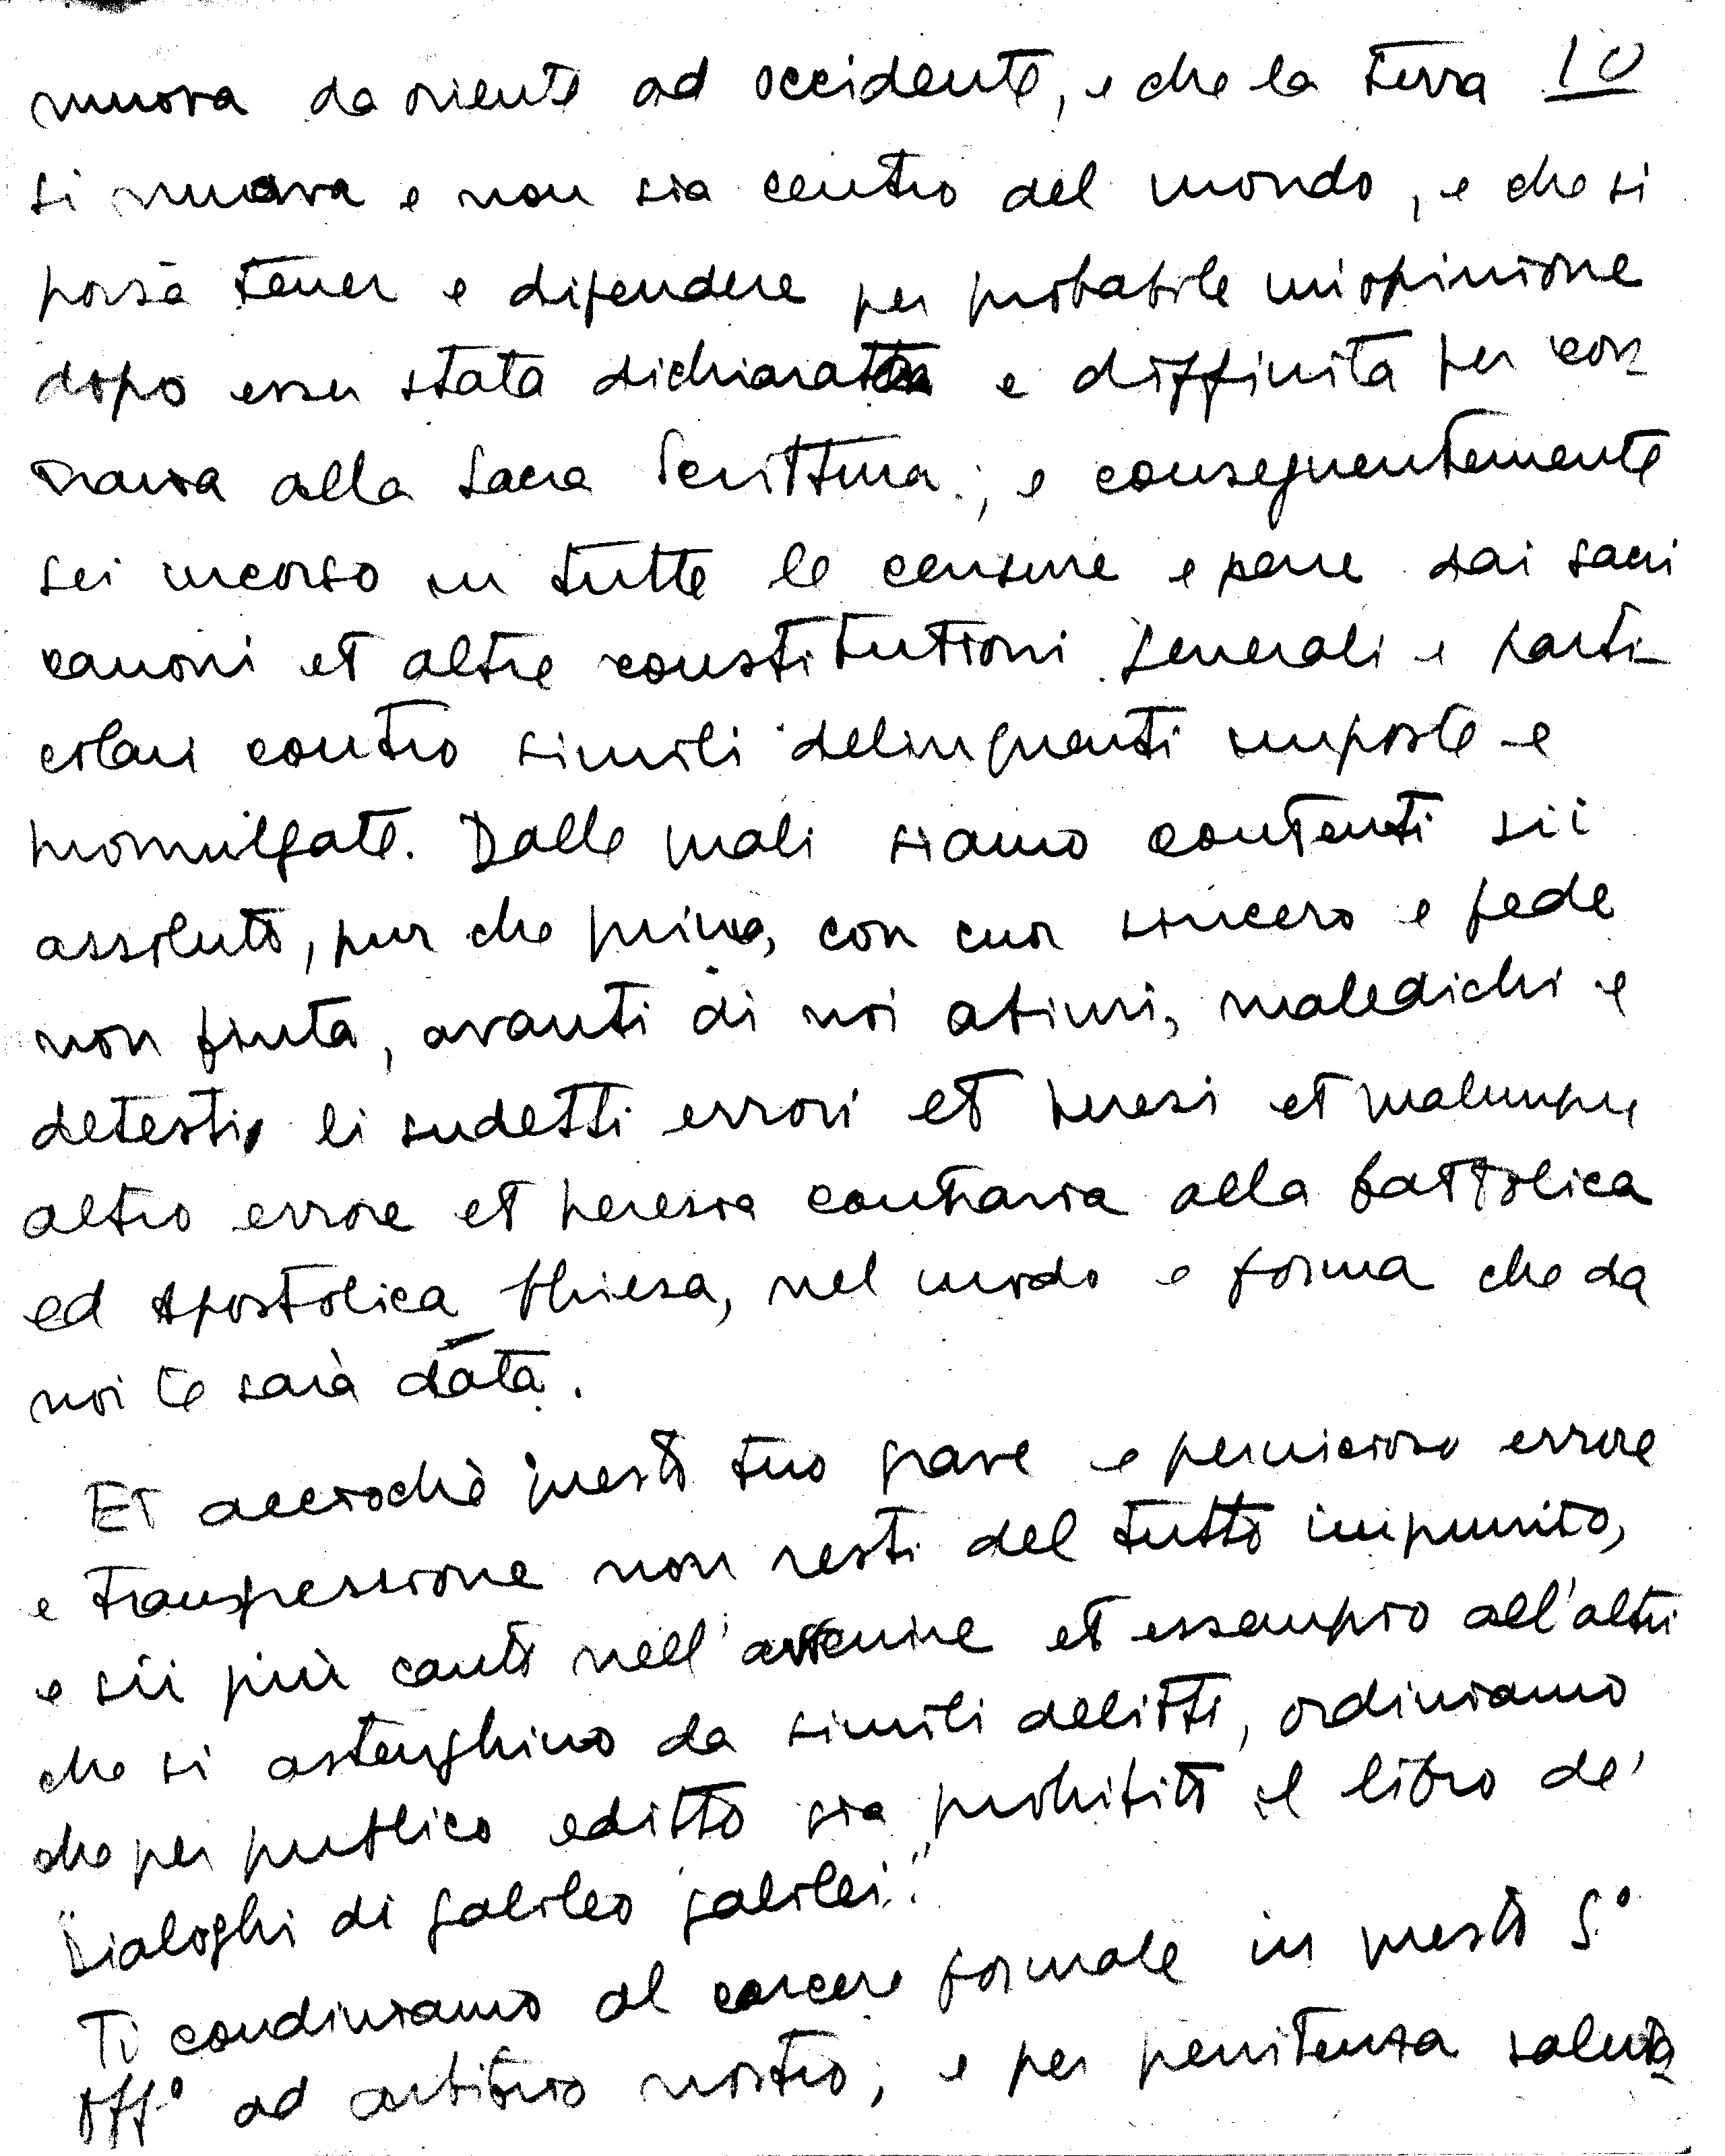 muova da oriente ad occidente, e che la terra 10
si muova e non sia centro del mondo, e che si
possa tener e difendere per probabile un'opinione
dopo esser stata dichiarata e diffinita per con
traria alla Sacra Scrittura; e conseguentemente
sei incorso in tutte le censure e pene dai sacri
canoni et altre constitutioni generali e parti-
colari contro simili delinquenti imposte e
promulgate. Dalle quali siamo contenti sii
assoluto, pur che prima, con cuor sincero e fede
non finta, avanti di noi abiuri, maledichi e
detesti li sudetti errori et heresi et qualunque
altro errore et heresia contraria alla Cattolica
ed Apostolica Chiesa, nel modo e forma che da
noi te sarà data.
Et acciochè questo tuo grave e pernicioso errore
e transgressione non resti del tutto impunito,
e sii più cauto nell'avvenire et essempio all'altri
che si astenghino da simili delitti, ordiniamo
che per publico editto sia prohibito il libro de'
"Dialoghi di Galileo Galilei."
Ti condiniamo al carcere formale in questo S.º
Off.º ad arbitrio nostro; e per penitenza salută